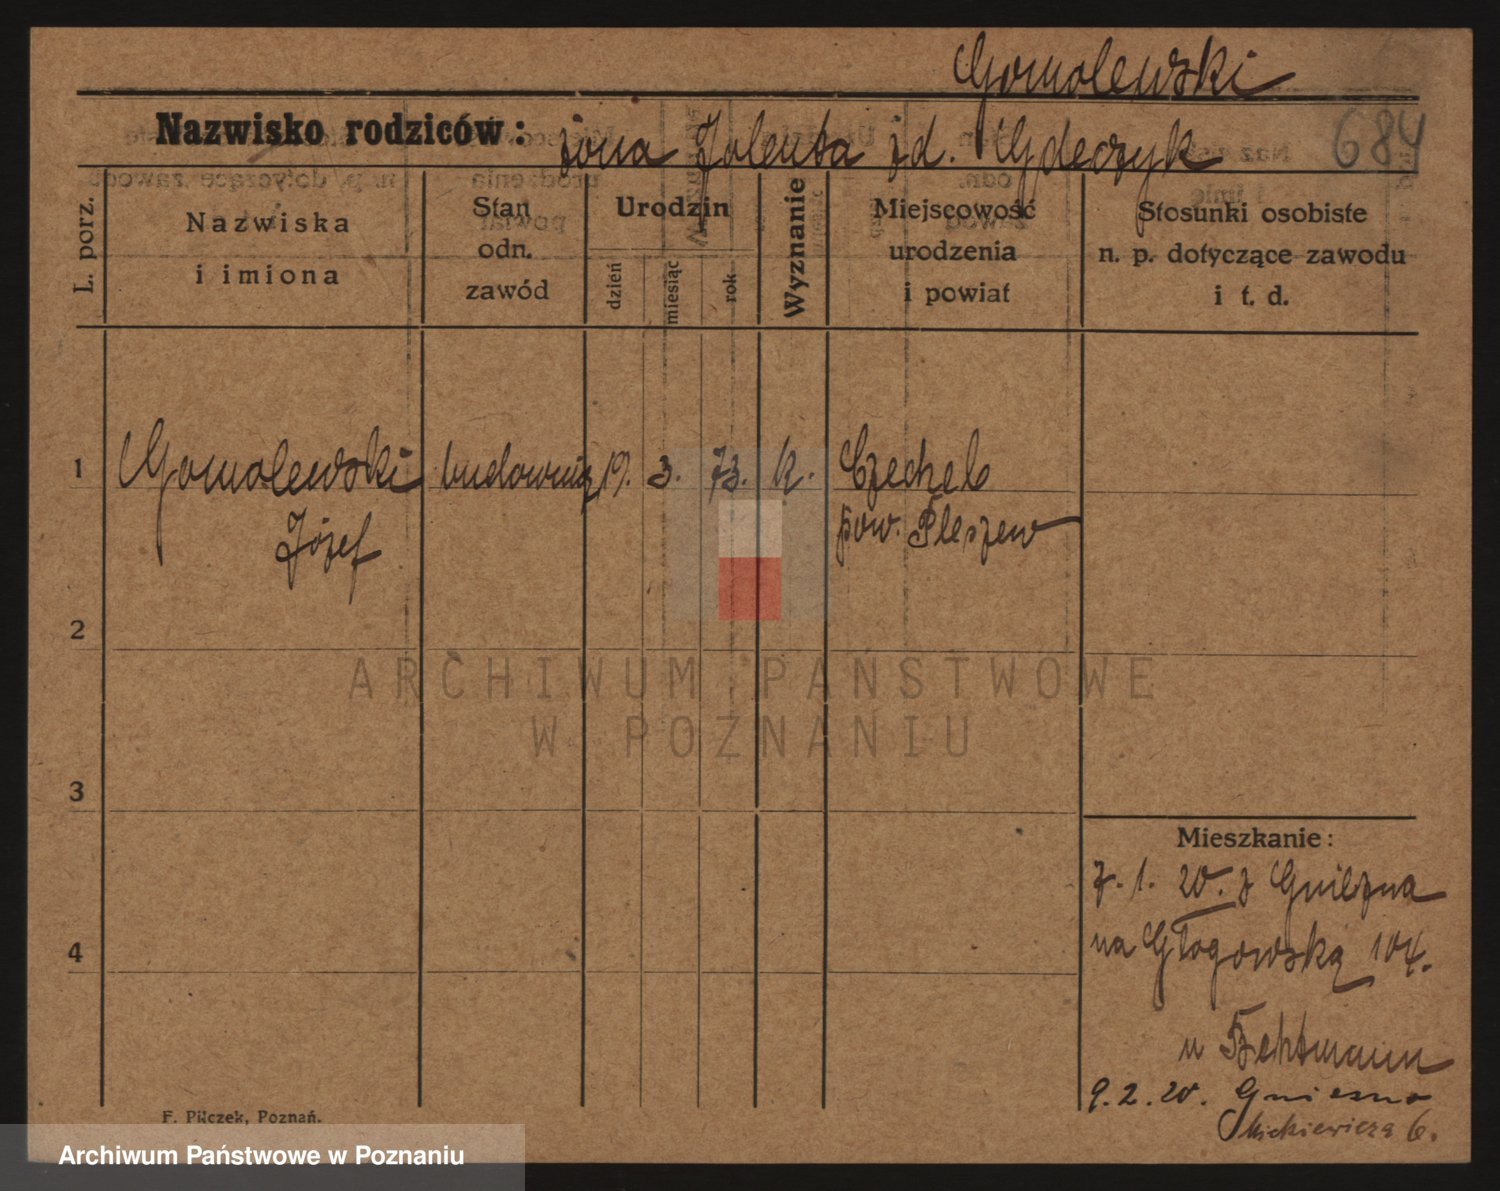 Gomolewski
Nazwisko rodziców: żona Jolenta zd. Gdeczyk 684
L. porz.
Nazwiska i imiona
Stan odn. zawód
Urodzin
dzień
miesiąc
rok
Wyznanie
Miejscowość urodzenia i powiat
Stosunki osobiste n. p. dotyczące zawodu i t. d.
1 Gomolewski budowniczy 19. 3. 73. k. Czechel
Józef pow. Pleszew
2
ARCHIWUM PAŃSTWOWE
W POZNANIU
3
Mieszkanie:
7. 1. 20. z Gniezna
4 na Głogowską 104.
u
9. 2. 20. Gniezno
Mickiewicza 6.
F. Pilczek, Poznań.
Archiwum Państwowe w Poznaniu